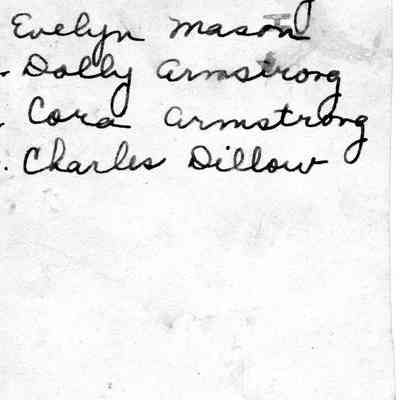 Evelyn Mason
. Dolly Armstrong
. Cora Armstrong
. Charles Dillow